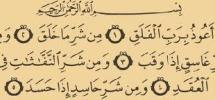 بِسْمِ اللَّهِ الرَّحْمَٰنِ الرَّحِيمِ
أَعُوذُ بِرَبِّ الْفَلَقِ ١ مِن شَرِّ مَا خَلَقَ ٢
غَاسِقٍ إِذَا وَقَبَ ٣ وَمِن شَرِّ النَّفَّٰثَٰتِ فِي
الْعُقَدِ ٤ وَمِن شَرِّ حَاسِدٍ إِذَا حَسَدَ ٥